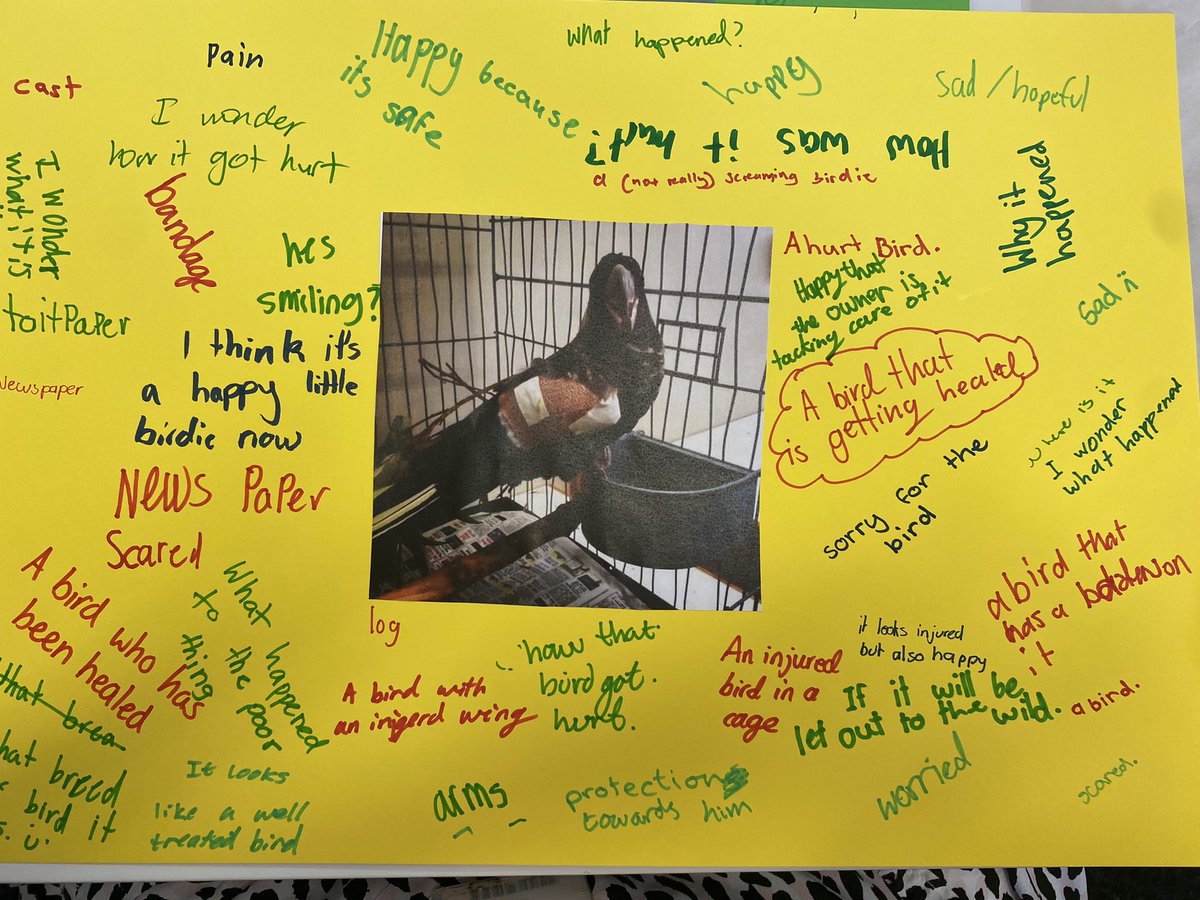 what happened?
Pain
Happy because
its safe
happy
sad / hopeful
cast
I wonder
how it got hurt
How was it hurt?
a (not really) screaming birdie
Why it
happened
I wonder
what it is
bandage
hes
smiling?
A hurt Bird.
Happy that
the owner is
tacking care of it
sad
toilt Paper
I think it's
a happy little
birdie now
Newspaper
A bird that
is getting healed
where is it
I wonder
what happened
NEWS PaPer
sorry for the
bird
Scared
A bird who has
been healed
What happened
to the poor
thing
log
how that
bird got
hurt.
A bird with
an injgerd wing
An injured
bird in a
cage
it looks injured
but also happy
If it will be
let out to the wild.
a bird that
has a
on
it
a bird.
that
hat breed
bird it
It looks
like a well
treated bird
arms
protection
towards him
worried
scared.